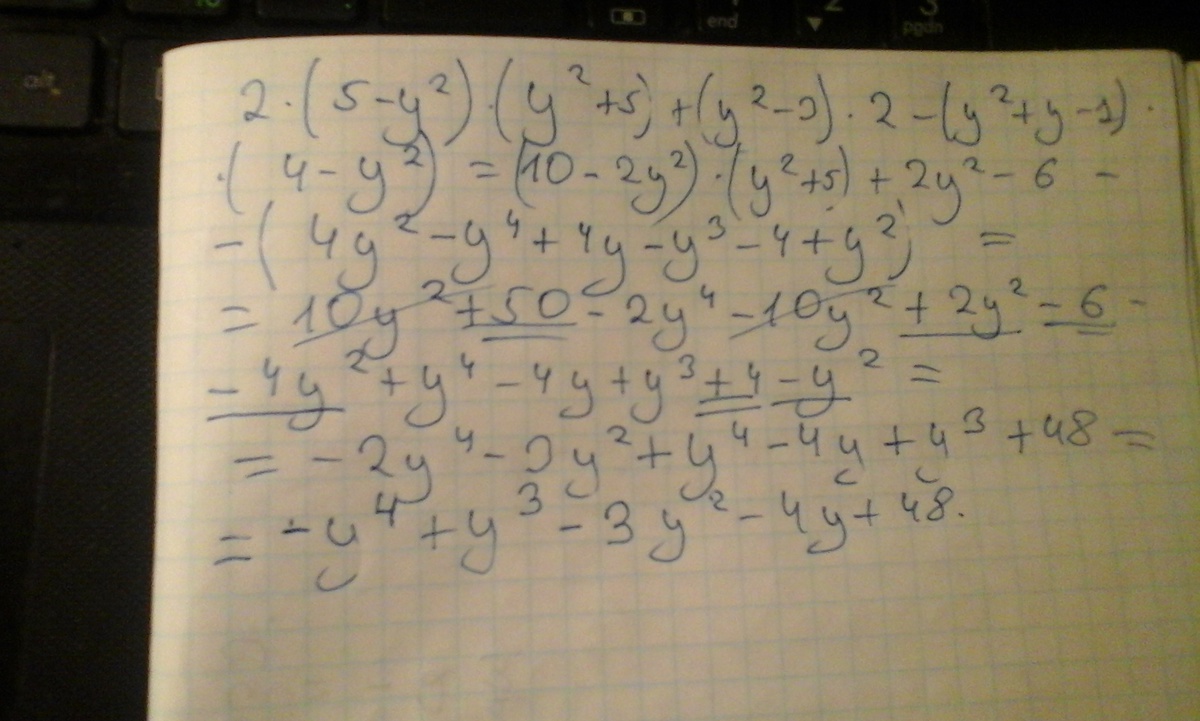 end 2 3 pgdn
alt
2·(5-y²)·(y²+5)+(y²-3)·2-(y²+y-1)·
·(4-y²)=(10-2y²)·(y²+5)+2y²-6-
-(4y²-y⁴+4y-y³-4+y²)=
=10y²+50-2y⁴-10y²+2y²-6-
-4y²+y⁴-4y+y³+4-y²=
=-2y⁴-3y²+y⁴-4y+y³+48=
=-y⁴+y³-3y²-4y+48.